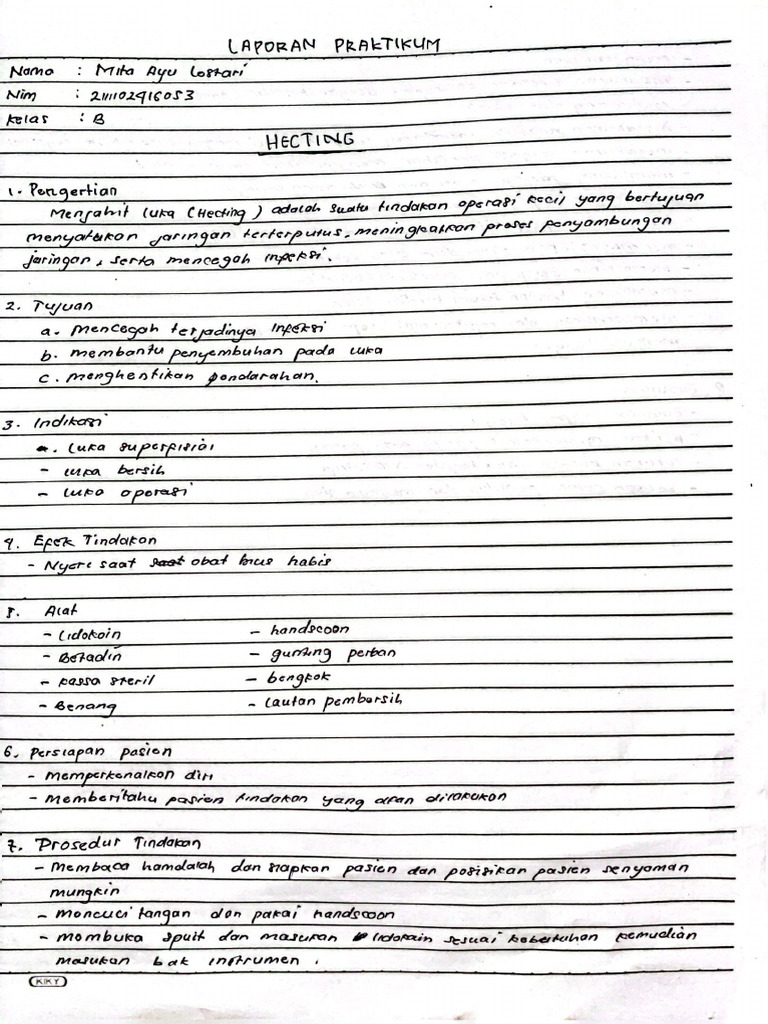 LAPORAN PRAKTIKUM
Nama : Mita Ayu Lestari
Nim : 211102416053
Kelas : B
HECTING
1. Pengertian
Menjahit luka (Hecting) adalah suatu tindakan operasi kecil yang bertujuan
menyatukan jaringan terterputus, meningkatkan proses penyambungan
jaringan, serta mencegah infeksi.
2. Tujuan
a. Mencegah terjadinya infeksi
b. membantu penyembuhan pada luka
c. menghentikan pendarahan.
3. Indikasi
- luka superfisial
- luka bersih
- luka operasi
4. Efek Tindakan
- Nyeri saat obat bius habis
5. Alat
- Lidokain - handscoon
- Betadin - gunting perban
- kassa steril - bengkok
- Benang - lautan pembersih
6. Persiapan pasien
- memperkenalkan diri
- Memberitahu pasien tindakan yang akan dilakukan
7. Prosedur Tindakan
- Membaca hamdalah dan siapkan pasien dan posisikan pasien senyaman
mungkin
- mencuci tangan dan pakai handscoon
- membuka spuit dan masukan lidokain sesuai kebutuhan kemudian
masukan bak instrumen.
KIKY